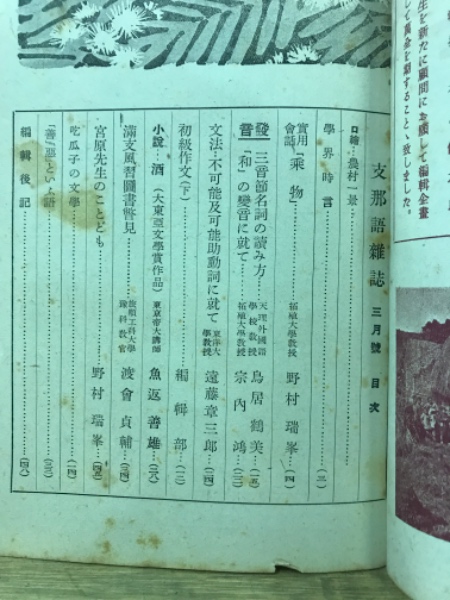 生を新たに顧問にお願して編輯企畫
して萬全を期することゝ致しました。
支那語雜誌 三月號 目次
口繪…農村一景
學界時言……(三)
實用會話「乘物」……拓殖大學教授 野村瑞峯…(四)
發音 二三音節名詞の讀み方……天理外國語學校教授 鳥居鶴美…(一五)
「和」の變音に就て……拓殖大學教授 宗內鴻…(三二)
文法・不可能及可能助動詞に就て 東洋大學教授 遠藤章三郎…(二四)
初級作文(下)……編輯部…(一二)
小說…酒(大東亞文學賞作品) 東京帝大講師 魚返善雄…(二六)
滿支風習圖書瞥見……旅順工科大學豫科教官 渡會貞輔…(三四)
宮原先生のことども……野村瑞峯…(四五)
吃瓜子の文學……(一四)
「善」「惡」といふ語……(三三)
編輯後記……(四八)